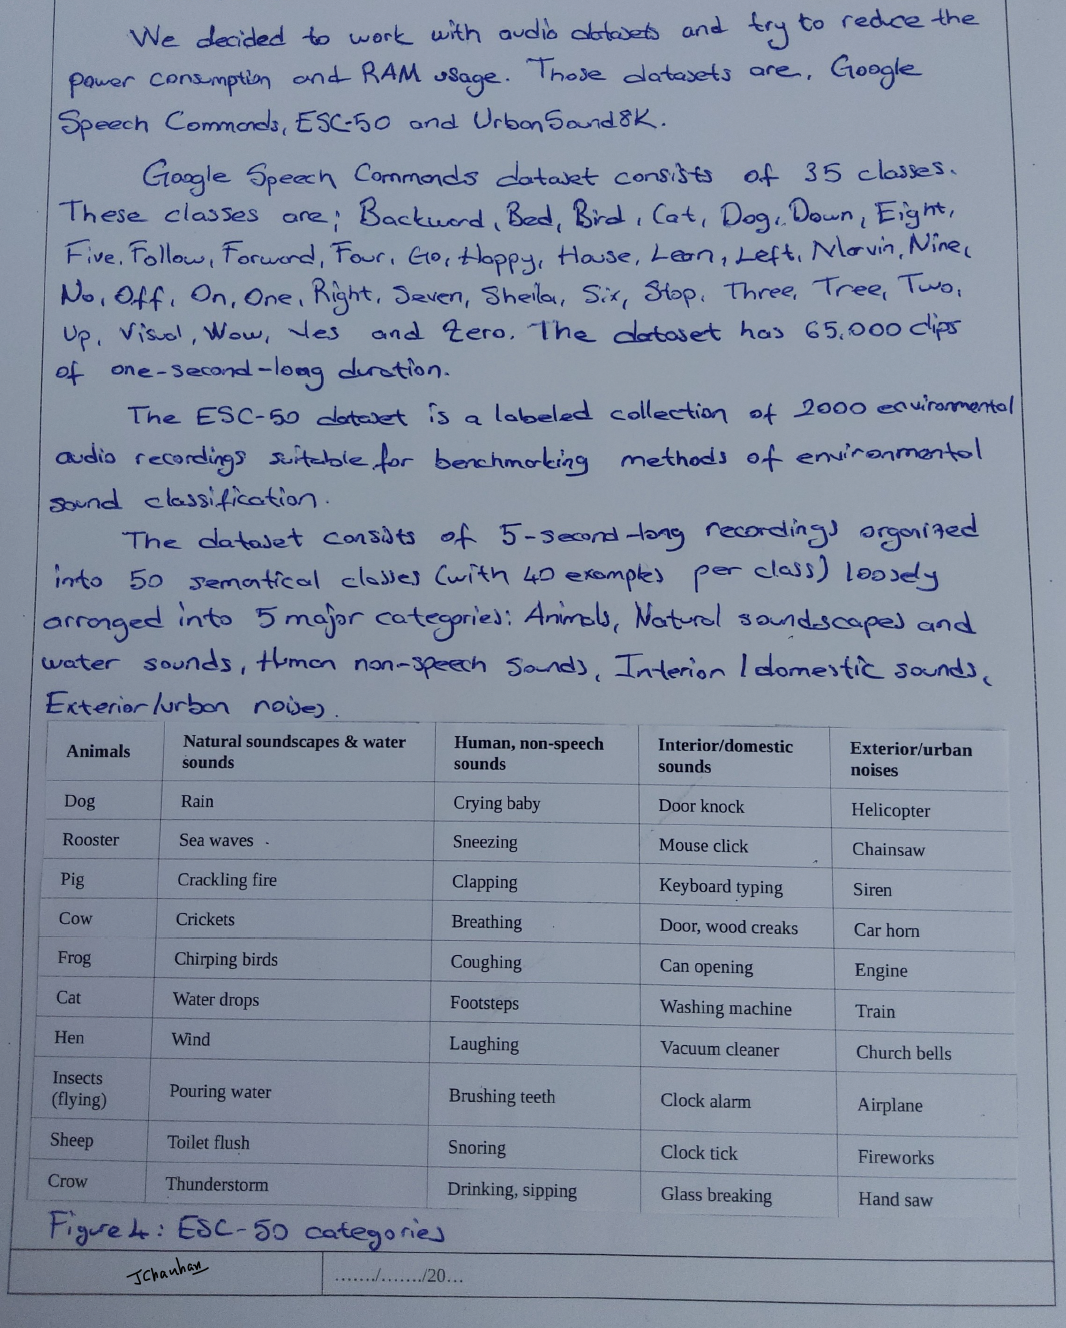 We decided to work with audio datasets and try to reduce the
power consumption and RAM usage. Those datasets are, Google
Speech Commands, ESC-50 and UrbanSound8K.
Google Speech Commands dataset consists of 35 classes.
These classes are; Backward, Bed, Bird, Cat, Dog, Down, Eight,
Five, Follow, Forward, Four, Go, Happy, House, Learn, Left, Marvin, Nine,
No, Off, On, One, Right, Seven, Sheila, Six, Stop, Three, Tree, Two,
Up, Visual, Wow, Yes and Zero. The dataset has 65.000 clips
of one-second-long duration.
The ESC-50 dataset is a labeled collection of 2000 environmental
audio recordings suitable for benchmarking methods of environmental
sound classification.
The dataset consists of 5-second-long recordings organized
into 50 semantical classes (with 40 examples per class) loosely
arranged into 5 major categories: Animals, Natural soundscapes and
water sounds, Human non-speech sounds, Interior/domestic sounds,
Exterior/urban noises.
Animals Natural soundscapes & water sounds Human, non-speech sounds Interior/domestic sounds Exterior/urban noises
Dog Rain Crying baby Door knock Helicopter
Rooster Sea waves Sneezing Mouse click Chainsaw
Pig Crackling fire Clapping Keyboard typing Siren
Cow Crickets Breathing Door, wood creaks Car horn
Frog Chirping birds Coughing Can opening Engine
Cat Water drops Footsteps Washing machine Train
Hen Wind Laughing Vacuum cleaner Church bells
Insects (flying) Pouring water Brushing teeth Clock alarm Airplane
Sheep Toilet flush Snoring Clock tick Fireworks
Crow Thunderstorm Drinking, sipping Glass breaking Hand saw
Figure 4: ESC-50 categories
JChauhan ......./......./20...